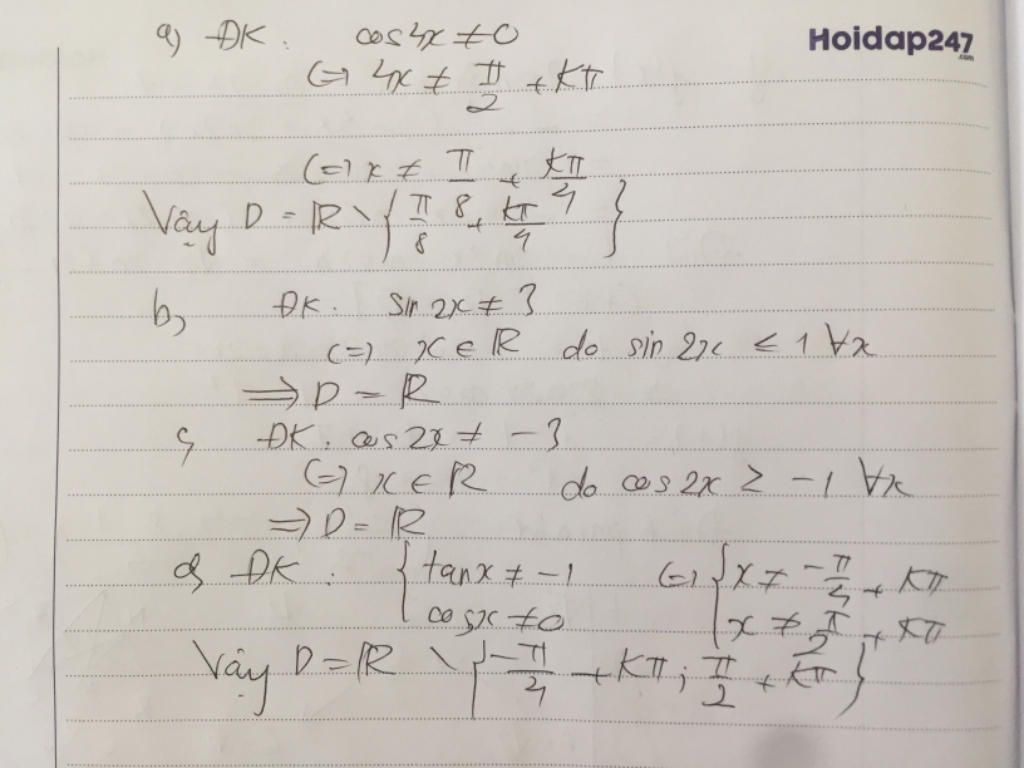 a) ĐK: cos4x ≠ 0
Hoidap247
.com
(=) 4x ≠ π/2 + kπ
(=) x ≠ π/8 + kπ/4
Vậy D = ℝ \ { π/8 + kπ/4 }
b, ĐK: sin 2x ≠ 3
(=) x ∈ ℝ do sin 2x ≤ 1 ∀x
=> D = ℝ
c, ĐK: cos 2x ≠ -3
(=) x ∈ ℝ do cos 2x ≥ -1 ∀x
=> D = ℝ
d, ĐK: { tanx ≠ -1 (=) { x ≠ -π/4 + kπ
cosx ≠ 0 x ≠ π/2 + kπ
Vậy D = ℝ \ { -π/4 + kπ; π/2 + kπ }